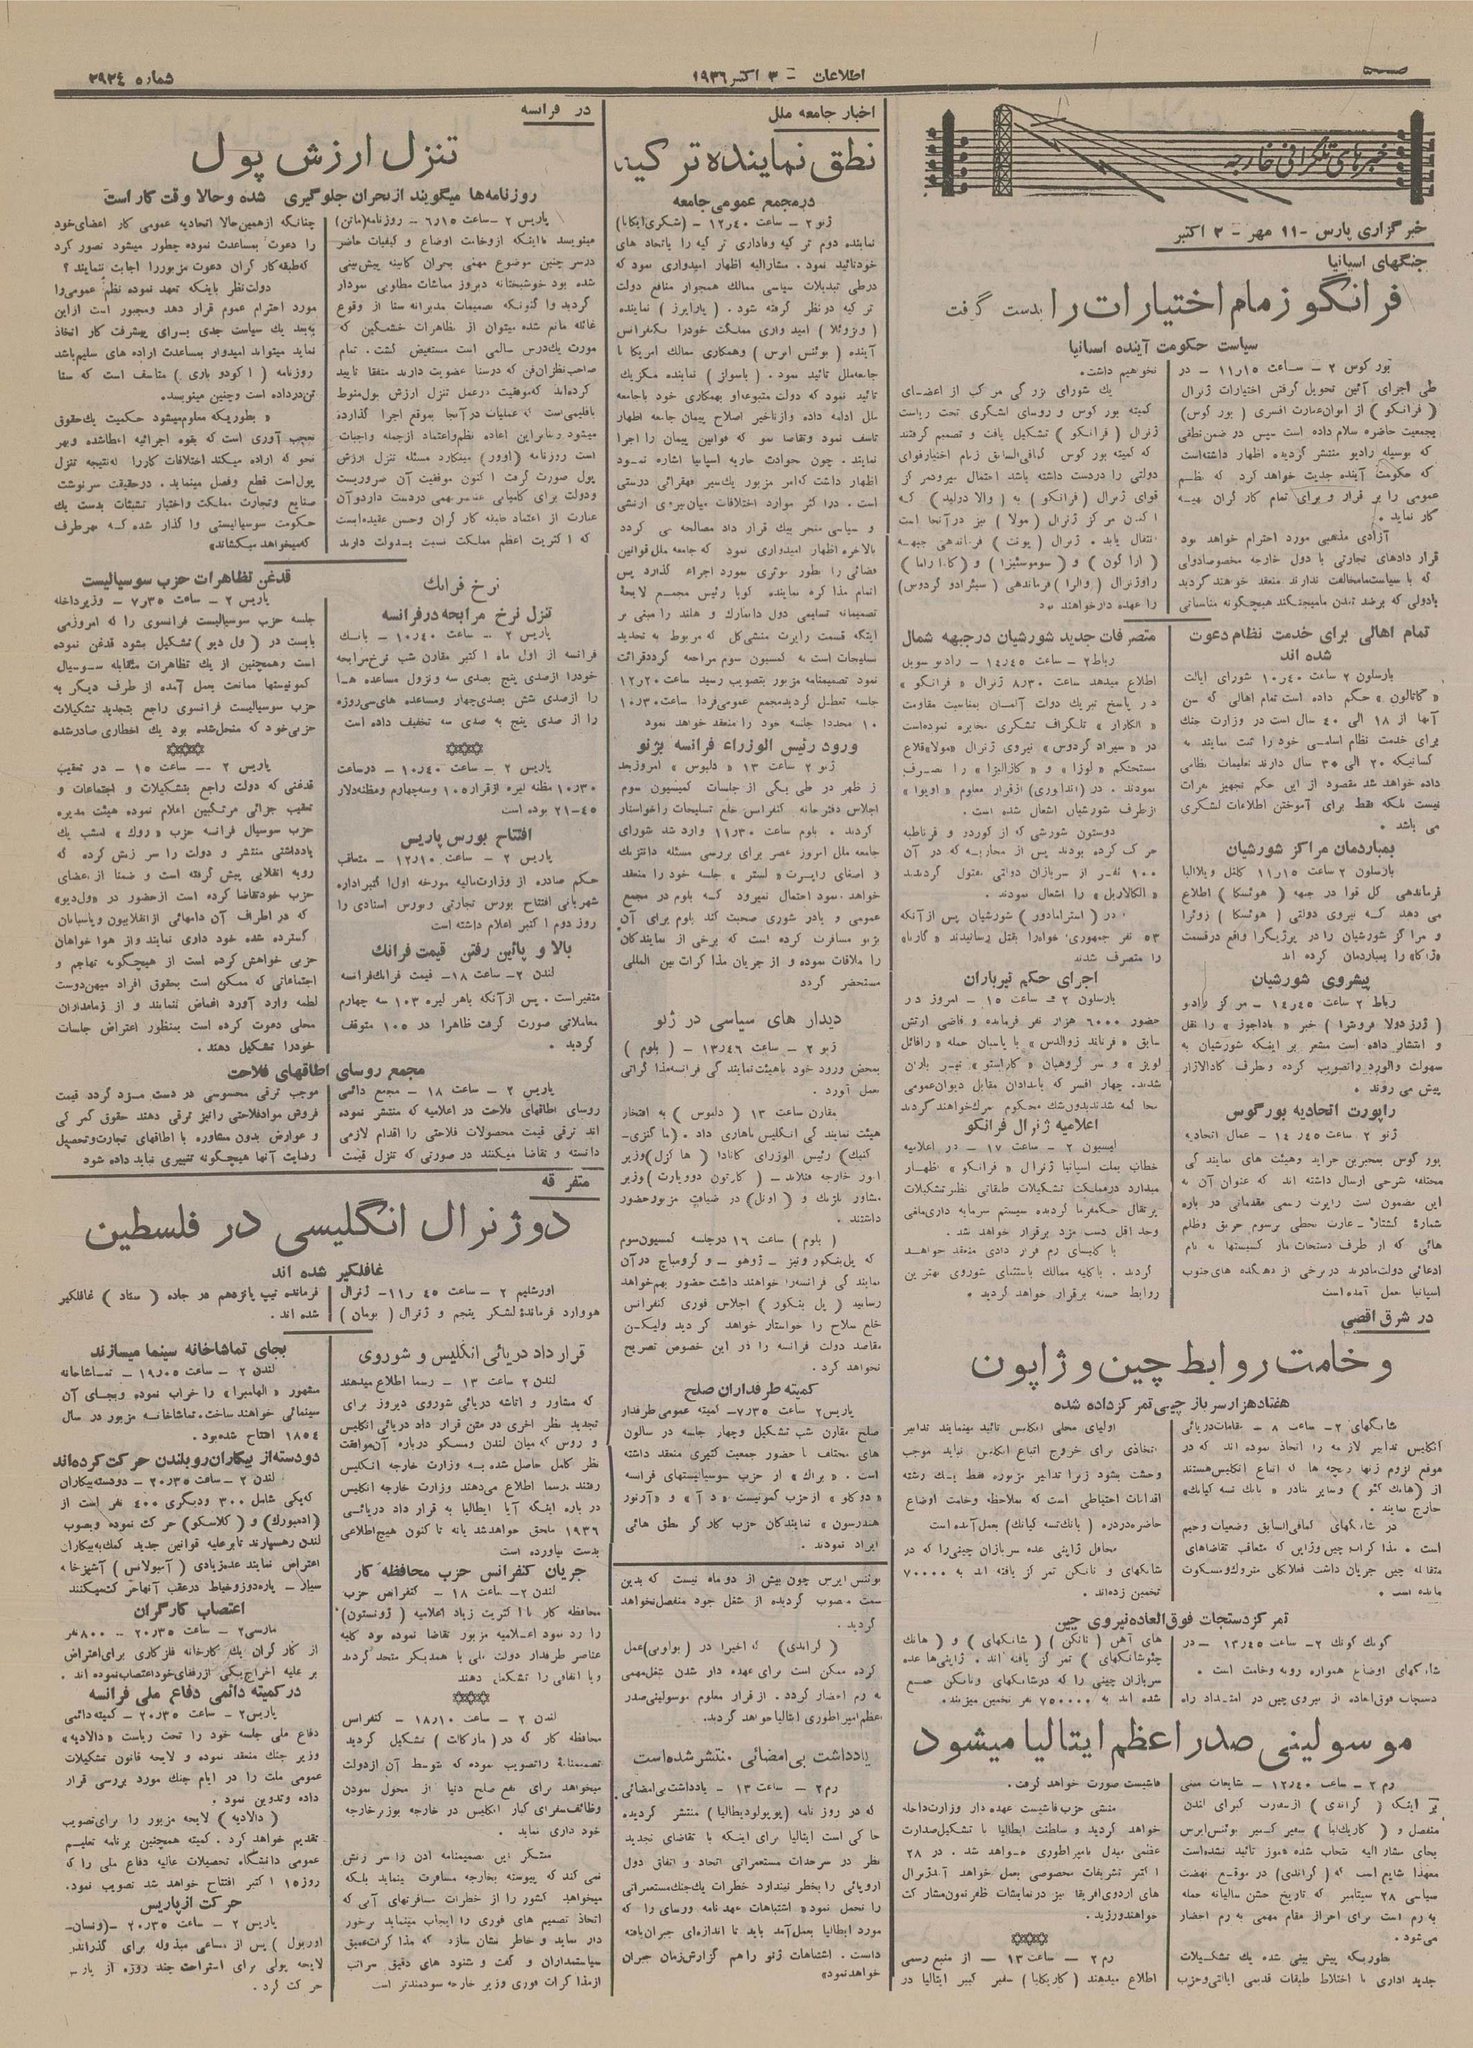 شماره ۲۹۲۴
اطلاعات - ۳ اکتبر ۱۹۳۶
خبرهای تلگرافی خارجه
خبرگزاری پارس - ۱۱ مهر - ۲ اکتبر
جنگهای اسپانیا
فرانگو زمام اختیارات را بدست گرفت
سیاست حکومت آینده اسپانیا
بور کوس ۲ - ساعت ۱۱ر۱۵ - در
طی اجرای آئین تحویل گرفتن اختیارات ژنرال
( فرانکو ) از ایوان عمارت افسری ( بور کوس )
بجمعیت حاضره سلام داده است سپس در ضمن نطقی
که بوسیله رادیو منتشر گردیده اظهار داشته است
که حکومت آینده جدیت خواهد کرد که نظم
عمومی را بر قرار و برای تمام کار گران تهیه
کار نماید .
آزادی مذهبی مورد احترام خواهد بود
قرار دادهای تجارتی با دول خارجه مخصوصا دولی
که با سیاست ما مخالفت ندارند منعقد خواهند گردید
بادولی که برضد تمدن ما میجنگند هیچگونه مناسباتی
نخواهیم داشت.
یك شورای بزرگی مرکب از اعضای
کمیته بور کوس و روسای لشگری تحت ریاست
ژنرال ( فرانکو ) تشکیل یافت و تصمیم گرفتند
دولتی را دردست داشته باشد احتمال میرود مر کز
قوای ژنرال ( فرانکو ) به ( والا دولید ) که
اکنون مرکز ژنرال ( مولا ) نیز در آنجا است
را عهده دار خواهند بود
تمام اهالی برای خدمت نظام دعوت
شده اند
بارسلون ۲ ساعت ۱۰ر۴۰ شورای ایالت
« کاتالون » حکم داده است تمام اهالی که سن
آنها از ۱۸ الی ۴۰ سال است در وزارت جنك
برای خدمت نظام اسامی خود را ثبت نمایند به
کسانیکه ۲۰ الی ۳۰ سال دارند تعلیمات نظامی
داده خواهد شد مقصود از این حکم تجهیز نفرات
نیست بلکه فقط برای آموختن اطلاعات لشکری
می باشد .
بمباردمان مراکز شورشیان
فرماندهی کل قوا در جبهه ( هوئسکا ) اطلاع
می دهد که نیروی دولتی ( هوئسکا )
پیشروی شورشیان
رباط ۲ ساعت ۱۴ر۴۵ - مرکز رادیو
پیش می روند .
راپورت اتحادیه بورگوس
ژنو ۲ ساعت ۱۴ر۴۵ - عمال اتحادیه
اسپانیا بعمل آمده است
متصرفات جدید شورشیان در جبهه شمال
رباط ۲ - ساعت ۱۴ر۴۵ - رادیو سویل
اطلاع میدهد ساعت ۸ر۳۰ ژنرال « فرانکو »
در پاسخ تبریك دولت آلمان بمناسبت مقاومت
« الکازار » تلگراف تشکری مخابره نموده است
از طرف شورشیان اشغال شده است .
« الکالاریل » را اشغال نمودند .
در ( استرامادور ) شورشیان پس از آنکه
۵۳ نفر جمهوری خواه را بقتل رسانیدند
را متصرف شدند
اجرای حکم تیرباران
بارسلون ۲ - ساعت ۱۵ - امروز در
حضور ۶۰۰۰ هزار نفر فرمانده و قاضی ارتش
شدند. چهار افسر که بامدادان مقابل دیوان عمومی
محاکمه شدند بدون شك محکوم بمرگ خواهند گردید
اعلامیه ژنرال فرانکو
لیسبون ۲ - ساعت ۱۷ - در اعلامیه
خطاب بملت اسپانیا ژنرال « فرانکو » اظهار
میدارد در مملکت تشکیلات طبقاتی نظیر تشکیلات
پرتقال حکمفرما گردیده سیستم سرمایه داری ملغی
وحد اقل دست مزد برقرار خواهد شد .
با کلیسای رم قرار دادی منعقد خواهد
گردید . با کلیه ممالك باستثنای شوروی بهترین
روابط حسنه برقرار خواهد گردید .
در شرق اقصی
وخامت روابط چین و ژاپون
هفتاد هزار سرباز چینی تمرکز داده شده
شانگهای ۲- ساعت ۸ - مقامات دریائی
انگلیس تدابیر لازمه را اتخاذ نموده اند که در
موقع لزوم زنها و بچه ها که اتباع انگلیس هستند
خارج نمایند .
اولیای محلی انگلیس تائید مینمایند تدابیر
اتخاذی برای خروج اتباع انگلیس نباید موجب
وحشت بشود زیرا تدابیر مزبوره فقط یك رشته
اقدامات احتیاطی است که بملاحظه وخامت اوضاع
محافل ژاپنی عده سربازان چینی را که در
شانگهای و نانکن تمرکز یافته اند به ۷۰۰۰۰
تخمین زده اند.
تمرکز دستجات فوق العاده نیروی چین
هنگ کونك ۲- ساعت ۱۳ر۴۵ - در
شانگهای اوضاع همواره رو به وخامت است .
دستجات فوق العاده از نیروی چین در امتداد راه
های آهن ( نانکن ) ( شانگهای ) و ( هانك
چئو شانگهای ) تمرکز یافته اند . ژاپنی ها عده
سربازان چینی را که در شانگهای و نانکن جمع
شده اند به ۷۵۰۰۰۰ نفر تخمین میزنند.
موسولینی صدر اعظم ایتالیا میشود
رم ۲ - ساعت ۱۲ر۴۰ - شایعات مبنی
بر اینکه ( گراندی ) از سفارت کبرای لندن
سیاسی ۲۸ سپتامبر که تاریخ جشن سالیانه حمله
به رم است برای احراز مقام مهمی به رم احضار
می شود .
بطوریکه پیش بینی شده یك تشکیلات
جدید اداری با اختلاط طبقات قدیمی ایالتی و حزب
فاشیست صورت خواهد گرفت.
منشی حزب فاشیست عهده دار وزارت داخله
خواهد گردید و سلطنت ایطالیا با تشکیل صدارت
عظمی مبدل بامپراطوری خواهد شد . در ۲۸
اکتبر تشریفات مخصوصی بعمل خواهد آمد ژنرال
های اردوی افریقا نیز در نمایشات ظفر نمون مشارکت
خواهند ورزید.
رم ۲ - ساعت ۱۳ - از منبع رسمی
اطلاع میدهند ( کاریکیا ) سفیر کبیر ایتالیا در
بوئنس ایرس چون بیش از دو ماه نیست که بدین
سمت منصوب گردیده از شغل خود منفصل نخواهد
گردید .
کرده ممکن است برای عهده دار شدن شغل مهمی
به رم احضار گردد . از قرار معلوم موسولینی صدر
اعظم امپراطوری ایتالیا خواهد گردید.
یادداشت بی امضائی منتشر شده است
رم ۲ - ساعت ۱۳ - یادداشت بی امضائی
که در روز نامه ( پوپولودیطالیا ) منتشر گردیده
حاکی است ایتالیا برای اینکه با تقاضای تجدید
نظر در سرحدات مستعمراتی اتحاد و اتفاق دول
اروپائی را بخطر نیندازد خطرات یك جنك مستعمراتی
را تحمل نمود « اشتباهات عهد نامه ورسای را که
داست . اشتباهات ژنو را هم گزارش زمان جبران
خواهد نمود»
اخبار جامعه ملل
نطق نماینده ترکیه
در مجمع عمومی جامعه
ژنو ۲ - ساعت ۱۲ر۴۰ - (شکری ایکایا)
نماینده دوم ترکیه وفاداری ترکیه را باتحاد های
خود تائید نمود . مشارالیه اظهار امیدواری نمود که
در طی تبدیلات سیاسی ممالك همجوار منافع دولت
ترکیه در نظر گرفته شود . ( پارابرز ) نماینده
( ونزوئلا ) امید واری مملکت خود را بکنفرانس
آینده ( بوئنس ایرس ) وهمکاری ممالك امریکا با
جامعه ملل تائید نمود . ( باسولز ) نماینده مکزیك
تائید نمود که دولت متبوعه او بهمکاری خود با جامعه
ملل ادامه داده و از تاخیر اصلاح پیمان جامعه اظهار
تاسف نمود و تقاضا نمود که قوانین پیمان را اجرا
نمایند . چون حوادث حاریه اسپانیا اشاره نمود
اظهار داشت که امر مزبور یك سیر قهقرائی درستی
و سیاسی منجر بیك قرار داد مصالحه می گردد
بالاخره اظهار امیدواری نمود که جامعه ملل قوانین
قضائی را بطور موثری مورد اجراء گذارد پس
تصمیمانه تسلیمی دول دانمارك و هلند را مبنی بر
تسلیحات است به کمسیون سوم مراجعه گردد قرائت
نمود تصمیمنامه مزبور بتصویب رسید ساعت ۱۲ر۲۰
جلسه تعطیل گردید مجمع عمومی فردا ساعت ۱۰ر۳۰
مجددا جلسه خود را منعقد خواهد نمود
ورود رئیس الوزراء فرانسه بژنو
ژنو ۲ ساعت ۱۳ « دلبوس » امروز بعد
از ظهر در طی یکی از جلسات کمیسیون سوم
اجلاس دفتر خانه کنفرانس خلع تسلیحات را خواستار
گردید . بلوم ساعت ۱۱ر۳۰ وارد شد شورای
جامعه ملل امروز عصر برای بررسی مسئله دانتزیك
و اصغای راپرت « لستر » جلسه خود را منعقد
خواهد. نمود احتمال نمیرود که بلوم در مجمع
عمومی و یا در شوری صحبت کند بلوم برای آن
بژنو مسافرت کرده است که برخی از نمایندگان
را ملاقات نموده و از جریان مذاکرات بین المللی
مستحضر گردد
دیدار های سیاسی در ژنو
ژنو ۲ - ساعت ۱۳ر۴۶ - ( بلوم )
بمحض ورود خود با هیئت نمایندگی فرانسه مذاکراتی
بعمل آورد .
مقارن ساعت ۱۳ ( دلبوس ) به افتخار
هیئت نمایندگی انگلیس ناهاری داد . ( ماکنزی-
کینك ) رئیس الوزرای کانادا
داشتند .
( بلوم ) ساعت ۱۶ در جلسه کمسیون سوم
رسانید ( پل بنکور ) اجلاس فوری کنفرانس
خلع سلاح را خواستار خواهد کردید ولیکن
مقاصد دولت فرانسه را در این خصوص تصریح
نخواهد کرد .
کمیته طرفداران صلح
پاریس ۲ ساعت ۷ر۳۵- کمیته عمومی طرفدار
صلح مقارن شب تشکیل و چهار جلسه در سالون
های مختلف با حضور جمعیت کثیری منعقد داشته
هندرسون » نمایندکان حزب کار گر نطق هائی
ایراد نمودند .
در فرانسه
تنزل ارزش پول
روزنامه ها میگویند از بحران جلوگیری شده و حالا وقت کار است
پاریس ۲ -ساعت ۶ر۱۵ - روزنامه (ماتن)
مینویسد با اینکه از وخامت اوضاع و کیفیات حاضر
در سر چنین موضوع مهمی بحران کابینه پیش بینی
شده بود خوشبختانه دیروز مماشات مطلوبی نمودار
گردید و آنگونه که تصمیمات مدبرانه سنا از وقوع
غائله مانع شده میتوان از تظاهرات خشمگین که
مورث یك درس سالمی است مستفیض گشت. تمام
صاحب نظران فن که در سنا عضویت دارند متفقا تایید
کرده اند که موفقیت در عمل تنزل ارزش پول منوط
باقلیمی ست که عملیات در آنجا بموقع اجرا گذارده
میشود و بنابراین اعاده نظم و اعتماد از جمله واجبات
است روزنامه (اوور) مینگارد مسئله تنزل ارزش
پول صورت گرفت اکنون موفقیت آن ضروریست
ودولت برای کامیابی عنصر مهمی دردست دارد و آن
عبارت از اعتماد طبقه کار گران وحسن عقیده است
که اکثریت اعظم مملکت نسبت بدولت دارند
چنانکه از همین حالا اتحادیه عمومی کار اعضای خود
را دعوت بمساعدت نموده چطور میشود تصور کرد
که طبقه کار گران دعوت مزبور را اجابت ننمایند ؟
دولت نظر باینکه تعهد نموده نظم عمومی را
مورد احترام عموم قرار دهد ومجبور است از این
ببعد یك سیاست جدی برای پیشرفت کار اتخاذ
نماید میتواند امیدوار بمساعدت اراده های سلیم باشد
روزنامه ( اکودوپاری ) متاسف است که سنا
تن درداده است وچنین مینویسد.
« بطوریکه معلوم میشود حکمیت یك حقوق
تعجب آوری است که بقوه اجرائیه اعطا شده و بهر
نحو که اراده میکند اختلافات کار را که نتیجه تنزل
پول است قطع وفصل مینماید . درحقیقت سرنوشت
صنایع وتجارت مملکت واختیار تشبثات بدست یك
حکومت سوسیالیستی وا گذار شده که بهر طرف
که میخواهد میکشاند»
نرخ فرانك
تنزل نرخ مرابحه در فرانسه
پاریس ۲ - ساعت ۱۰ر۴۰ - بانك
فرانسه از اول ماه اکتبر مقارن شب نرخ مرابحه
خودرا از صدی پنج بصدی سه ونزول مساعده ها
را از صدی شش بصدی چهار ومساعده های سی روزه
را از صدی پنج به صدی سه تخفیف داده است
پاریس ۲ - ساعت ۱۰ر۴۰ - در ساعت
۱۰ر۳۰ مظنه لیره از قرار ۱۰۵ وسه چهارم ومظنه دلار
۲۱-۴۵ بوده است
افتتاح بورس پاریس
پاریس ۲ - ساعت ۱۲ر۱۰ - متعاقب
حکم صادره از وزارت مالیه مورخه اول اکتبر اداره
شهربانی افتتاح بورس تجارتی و بورس اسنادی را
روز دوم اکتبر اعلام داشته است
بالا و پائین رفتن قیمت فرانك
لندن ۲- ساعت ۱۸- قیمت فرانك فرانسه
متغیر است . پس از آنکه باهر لیره ۱۰۳ سه چهارم
معاملاتی صورت گرفت ظاهرا در ۱۰۵ متوقف
گردید .
قدغن تظاهرات حزب سوسیالیست
پاریس ۲ - ساعت ۷ر۳۵ - وزیر داخله
جلسه حزب سوسیالیست فرانسوی را که امروز می
بایست در ( ول دیو ) تشکیل بشود قدغن نموده
است وهمچنین از یك تظاهرات متقابله سوسیال
کمونیستها ممانعت بعمل آمده از طرف دیگر به
حزب سوسیالیست فرانسوی راجع بتجدید تشکیلات
حزبی خود که منحل شده بود یك اخطاری صادر شده
پاریس ۲ - ساعت ۱۵ - در تعقیب
قدغنی که دولت راجع بتشکیلات و اجتماعات و
تعقیب جزائی مرتکبین اعلام نموده هیئت مدیره
حزب سوسیال فرانسه حزب « روك » امشب یك
یادداشتی منتشر و دولت را سر زنش کرده که
رویه انقلابی پیش گرفته است و ضمنا از اعضای
حزب خود تقاضا کرده است از حضور در «ول دیو»
که در اطراف آن دامهائی از انقلابیون و پاسبانان
گسترده شده خود داری نمایند و از هوا خواهان
حزبی خواهش کرده است از هیچگونه تهاجم و
اجتماعاتی که ممکن است بحقوق افراد میهن دوست
لطمه وارد آورد اغماض ننمایند و از زمامداران
محلی دعوت کرده است بمنظور اعتراض جلسات
خودرا تشکیل دهند .
مجمع روسای اطاقهای فلاحت
پاریس ۲ - ساعت ۱۸ - مجمع دائمی
روسای اطاقهای فلاحت در اعلامیه که منتشر نموده
اند ترقی قیمت محصولات فلاحتی را اقدام لازمی
دانسته و تقاضا میکنند در صورتی که تنزل قیمت
موجب ترقی محسوسی در دست مزد گردد قیمت
فروش مواد فلاحتی را نیز ترقی دهند حقوق گمرکی
و عوارض بدون مشاوره با اطاقهای تجارت و تحصیل
رضایت آنها هیچگونه تغییری نباید داده شود
متفرقه
دو ژنرال انگلیسی در فلسطین
غافلگیر شده اند
اورشلیم ۲ - ساعت ۱۱ر۴۵- ژنرال
هووارد فرماندهٔ لشکر پنجم و ژنرال ( بومان )
فرمانده تیپ پانزدهم در جاده ( ستاد ) غافلگیر
شده اند .
قرار داد دریائی انگلیس و شوروی
لندن ۲ ساعت ۱۳ - رسما اطلاع میدهند
که مشاور و اتاشه دریائی شوروی دیروز برای
تجدید نظر اخری در متن قرار داد دریائی انگلیس
و روس که میان لندن ومسکو درباره آن موافقت
نظر کامل حاصل شده به وزارت خارجه انگلیس
رفتند . رسما اطلاع می دهند وزارت خارجه انگلیس
در باره اینکه آیا ایطالیا به قرار داد دریائی
۱۹۳۶ ملحق خواهد شد یانه تا کنون هیچ اطلاعی
بدست نیاورده است
جریان کنفرانس حزب محافظه کار
لندن ۲ - ساعت ۱۸ - کنفرانس حزب
محافظه کار با اکثریت زیاد اعلامیه ( ژونستون )
را رد نمود اعلامیه مزبور تقاضا نموده بود کلیه
عناصر طرفدار دولت ملی با همدیگر متحد گردیده
و با اتفاقی را تشکیل دهند
لندن ۲ - ساعت ۱۸ر۱۰ - کنفرانس
محافظه کار که در ( مارگات ) تشکیل گردید
تصمیمنامهٔ را تصویب نموده که بتوسط آن از دولت
میخواهد برای نفع صلح دنیا از محول نمودن
وظائف سفرای کبار انگلیس در خارجه بوزیر خارجه
خود داری نماید .
مبتکر این تصمیمنامه ادن را سرزنش
نمی کند که پیوسته بخارجه مسافرت مینماید بلکه
میخواهد کشور را از خطرات مسافرتهای آنی که
اتخاذ تصمیم های فوری را ایجاب مینماید برخور
دار نماید و خاطر نشان سازد که مذاکرات عمیق
سیاستمداران و گفت و شنود های دقیق بمراتب
از مذاکرات فوری وزیر خارجه سودمندتر است
بجای تماشاخانه سینما میسازند
لندن ۲ - ساعت ۱۹ر۰۵ - تماشاخانه
مشهور « الهامبرا » را خراب نموده وبجای آن
سینمائی خواهند ساخت. تماشاخانه مزبور در سال
۱۸۵۴ افتتاح شده بود.
دو دسته از بیکاران رو بلندن حرکت کرده اند
لندن ۲ - ساعت ۲۰ر۳۵ - دودسته بیکاران
که یکی شامل ۳۰۰ ودیگری ۴۰۰ نفر است از
(ادمبورك) و ( کلاسکو) حرکت نموده وبصوب
لندن رهسپارند تا بر علیه قوانین جدید کمك به بیکاران
اعتراض نمایند عده زیادی ( آمبولانس ) آشپز خانه
سیار - پاره دوز و خیاط در عقب آنها حرکت میکنند
اعتصاب کارگران
مارسی ۲ - ساعت ۲۰ر۳۵ - ۸۰۰ نفر
از کار گران یك کارخانه فلز کاری برای اعتراض
بر علیه اخراج یکی از رفقای خود اعتصاب نموده اند .
در کمیته دائمی دفاع ملی فرانسه
پاریس ۲- ساعت ۲۰ر۳۵- کمیته دائمی
دفاع ملی جلسه خود را تحت ریاست « دالادیه »
وزیر جنك منعقد نموده و لایحه قانون تشکیلات
عمومی ملت را در ایام جنك مورد بررسی قرار
داده وتدوین نمود .
( دالادیه ) لایحه مزبور را برای تصویب
تقدیم خواهد کرد . کمیته همچنین برنامه تعلیم
عمومی دانشگاه تحصیلات عالیه دفاع ملی را که
روز ۱۵ اکتبر افتتاح خواهد شد تصویب نمود.
حرکت از پاریس
پاریس ۲ - ساعت ۲۰ر۳۵ - (ونسان-
اوریول ) پس از مساعی مبذوله برای گذراندن
لایحه پولی برای استراحت چند روزه از پاریس
حرکت کرد .